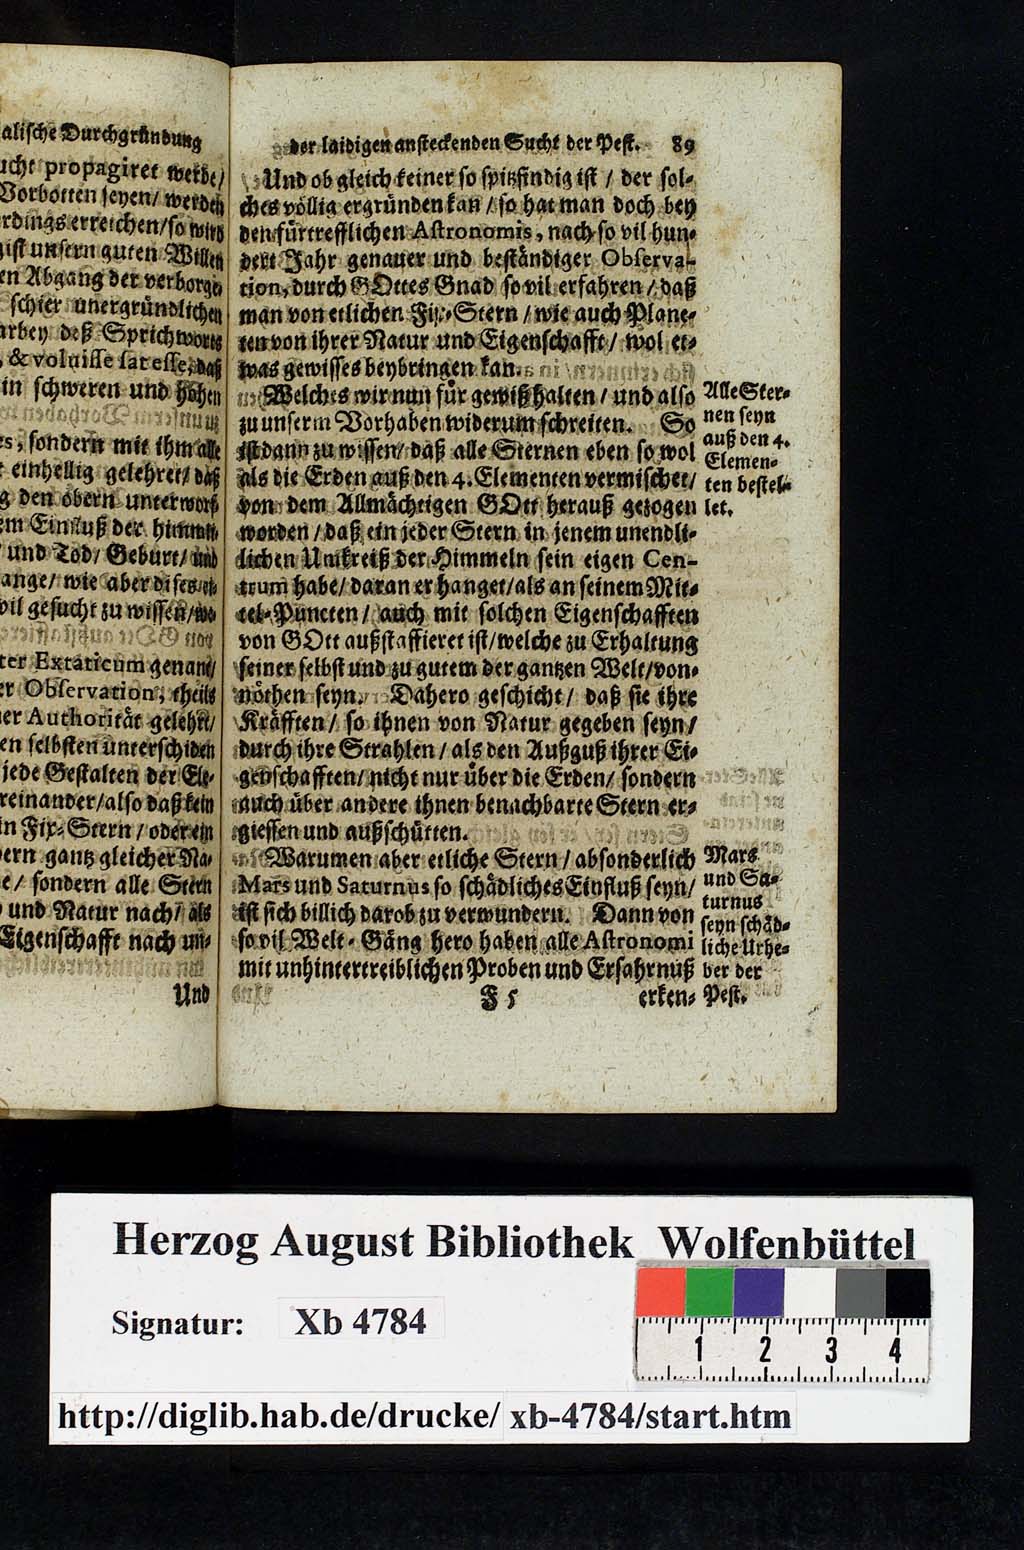 alische Durchgründung
ucht propagiret werde/
Vorbotten seyen/ werden
rdings erreichen/so wird
gist unsern guten Willen
en Abgang der verborge
schier unergründlichen
arbey deß Sprichworts
, & voluisse sat esse, daß
in schweren und hohen
es, sondern mit ihm alle
t einhellig gelehret/ daß
g den obern unterworf
em Einfluß der himmli-
/ und Tod/ Geburt/ und
ange/ wie aber dises
vil gesucht zu wissen/
ter Extaticum genant/
er Observation, theils
er Authorität gelehrt/
en selbsten unterschiden
jede Gestalten der Ele-
reinander/also daß kein
in Fix-Stern/ oder ein
ern gantz gleicher Na-
e/ sondern alle Stern
und Natur nach/ als
Eigenschafft nach un-
Und
der laidigen ansteckenden Sucht der Pest. 89
Und ob gleich keiner so spitzfindig ist / der sol-
ches völlig ergründen kan / so hat man doch bey
den fürtrefflichen Astronomis, nach so vil hun-
dert Jahr genauer und beständiger Observa-
tion, durch GOttes Gnad so vil erfahren / daß
man von etlichen Fix-Stern / wie auch Plane-
ten von ihrer Natur und Eigenschafft / wol et-
was gewisses beybringen kan.
Welches wir nun für gewiß halten / und also
zu unserm Vorhaben widerum schreiten. So
ist dann zu wissen/ daß alle Sternen eben so wol
als die Erden auß den 4. Elementen vermischet/
von dem Allmächtigen GOtt herauß gezogen
worden / daß ein jeder Stern in jenem unendli-
lichen Umkreiß der Himmeln sein eigen Cen-
trum habe/ daran er hanget/als an seinem Mit-
tel-Puncten / auch mit solchen Eigenschafften
von GOtt außstaffieret ist/welche zu Erhaltung
seiner selbst und zu gutem der gantzen Welt/von-
nöthen seyn. Dahero geschicht / daß sie ihre
Kräfften / so ihnen von Natur gegeben seyn /
durch ihre Strahlen / als den Außguß ihrer Ei-
genschafften/ nicht nur über die Erden/ sondern
auch über andere ihnen benachbarte Stern er-
giessen und außschütten.
Warumen aber etliche Stern / absonderlich
Mars und Saturnus so schädliches Einfluß seyn/
ist sich billich darob zu verwundern. Dann von
so vil Welt-Gäng hero haben alle Astronomi
mit unhintertreiblichen Proben und Erfahrnuß
F 5 erken-
Alle Ster-
nen seyn
auß den 4.
Elemen-
ten bestel-
let.
Mars
und Sa-
turnus
seyn schäd-
liche Urhe-
ber der
Pest.
Herzog August Bibliothek Wolfenbüttel
Signatur: Xb 4784
1 2 3 4
http://diglib.hab.de/drucke/ xb-4784/start.htm